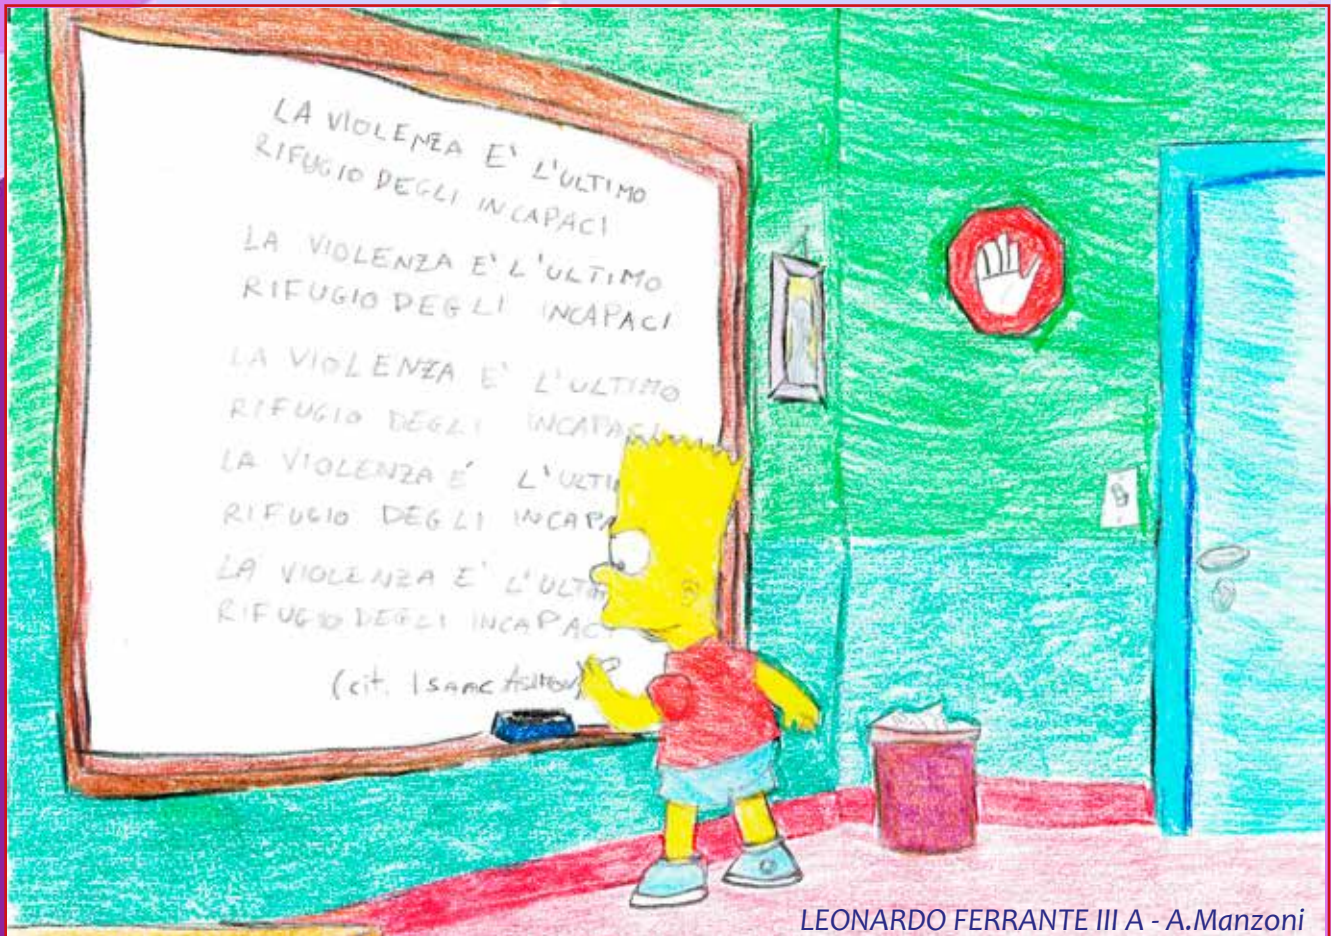 LA VIOLENZA E' L'ULTIMO
RIFUGIO DEGLI INCAPACI
LA VIOLENZA E' L'ULTIMO
RIFUGIO DEGLI INCAPACI
LA VIOLENZA E' L'ULTIMO
RIFUGIO DEGLI INCAPACI
LA VIOLENZA E' L'ULTI
RIFUGIO DEGLI INCAPA
LA VIOLENZA E' L'ULTI
RIFUGIO DEGLI INCAPAC
(cit. ISAAC ASIMOV)
LEONARDO FERRANTE III A - A.Manzoni